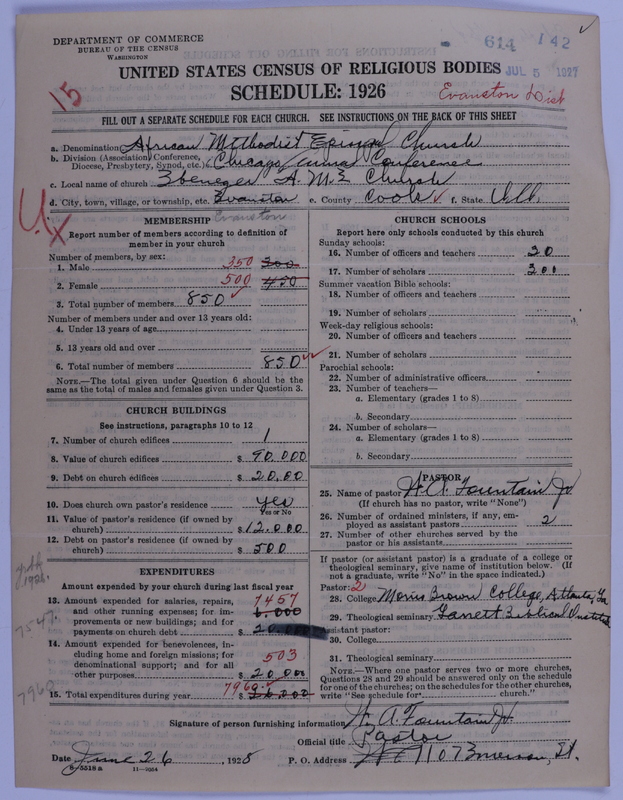 DEPARTMENT OF COMMERCE
BUREAU OF THE CENSUS
WASHINGTON
614 142
UNITED STATES CENSUS OF RELIGIOUS BODIES
JUL 5 1927
SCHEDULE: 1926
15
Evanston Dist
FILL OUT A SEPARATE SCHEDULE FOR EACH CHURCH. SEE INSTRUCTIONS ON THE BACK OF THIS SHEET
a. Denomination African Methodist Episcopal Church
b. Division (Association, Conference, Diocese, Presbytery, Synod, etc.) Chicago Annual Conference
c. Local name of church Ebenezer A. M. E Church
d. City, town, village, or township, etc. Evanston e. County Cook f. State Ill.
Evanston
MEMBERSHIP
Report number of members according to definition of
member in your church
Number of members, by sex:
1. Male 350 300
2. Female 500 450
3. Total number of members 850
Number of members under and over 13 years old:
4. Under 13 years of age
5. 13 years old and over
6. Total number of members 850
NOTE.—The total given under Question 6 should be the
same as the total of males and females given under Question 3.
CHURCH BUILDINGS
See instructions, paragraphs 10 to 12
7. Number of church edifices 1
8. Value of church edifices $ 90.000
9. Debt on church edifices $ 20.00
10. Does church own pastor's residence yes
Yes or No
11. Value of pastor's residence (if owned by
church) $ 12.000
12. Debt on pastor's residence (if owned by
church) $ 500
EXPENDITURES
Amount expended by your church during last fiscal year
13. Amount expended for salaries, repairs,
and other running expenses; for im-
provements or new buildings; and for
payments on church debt $
7457
14. Amount expended for benevolences, in-
cluding home and foreign missions; for
denominational support; and for all
other purposes $ 20.000
503
15. Total expenditures during year $
7960
1926
7547
7960
CHURCH SCHOOLS
Report here only schools conducted by this church
Sunday schools:
16. Number of officers and teachers 20
17. Number of scholars 200
Summer vacation Bible schools:
18. Number of officers and teachers
19. Number of scholars
Week-day religious schools:
20. Number of officers and teachers
21. Number of scholars
Parochial schools:
22. Number of administrative officers
23. Number of teachers—
a. Elementary (grades 1 to 8)
b. Secondary
24. Number of scholars—
a. Elementary (grades 1 to 8)
b. Secondary
PASTOR
25. Name of pastor W. A. Fountain Jr
(If church has no pastor, write "None")
26. Number of ordained ministers, if any, em-
ployed as assistant pastors 2
27. Number of other churches served by the
pastor or his assistants
If pastor (or assistant pastor) is a graduate of a college or
theological seminary, give name of institution below. (If
not a graduate, write "No" in the space indicated.)
Pastor: 2
28. College Morris Brown College, Atlanta, Ga
29. Theological seminary Garrett Biblical Institute
Assistant pastor:
30. College
31. Theological seminary
NOTE.—Where one pastor serves two or more churches,
Questions 28 and 29 should be answered only on the schedule
for one of the churches; on the schedules for the other churches,
write "See schedule for church."
Signature of person furnishing information W. A. Fountain Jr.
Official title Pastor
Date June 26, 1928 P. O. Address 1107 Emerson, St.
8-5518 a 11-9054